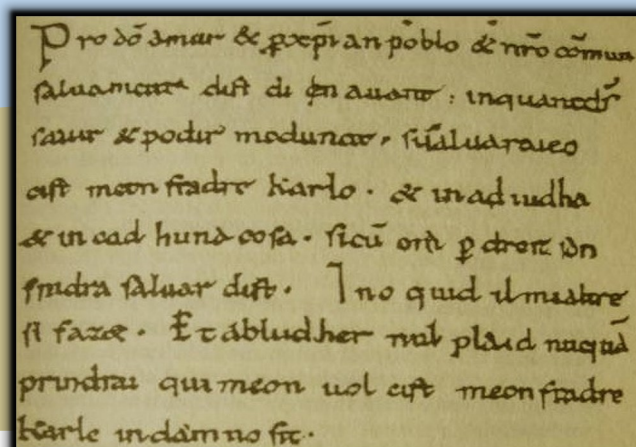 Pro dō amur & ꝑ xp̄ian poblo & nr̄o cōmun
saluament. dist di en auant . inquantdś
sauir & podir medunat . sisaluaraieo
cist meon fradre karlo . & in ad iudha
& in cad huna cosa . sicū om ꝑ dreit son
fradra saluar dist . Ino quid il mialtre
si faz& . Et abludher nul plaid nuquā
prindrai qui meon uol cist meon fradre
karle in damno sit .